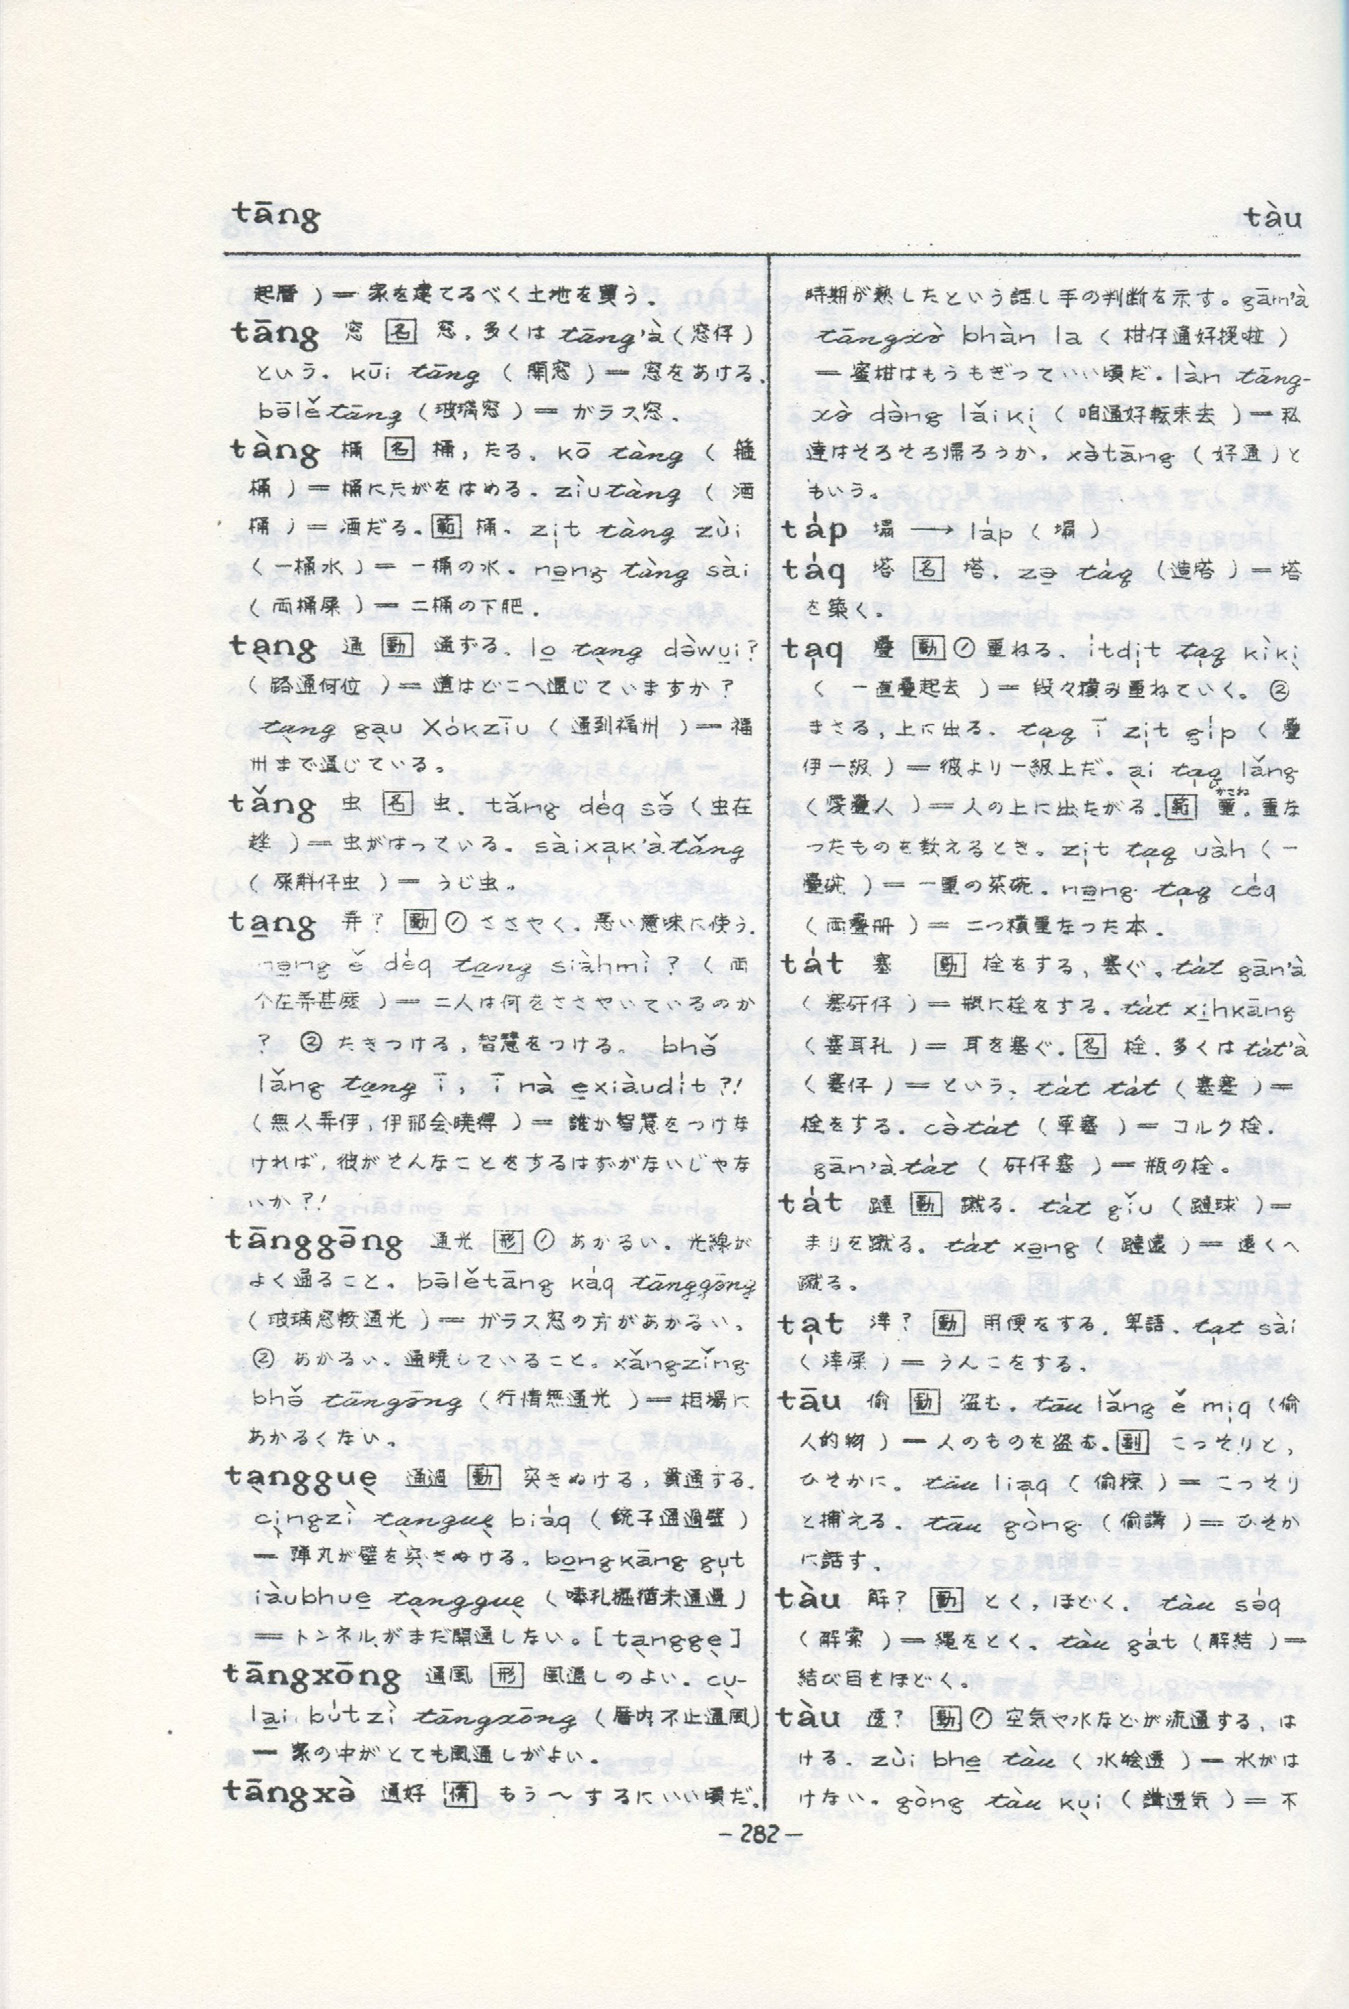 tāng
tàu
起厝 )= 家を建てるべく土地を買う。
tāng 窓 [名] 窓,多くは tāng'à (窓仔)
という。 kūi tāng ( 開窓 )= 窓をあける。
bōlětāng (玻璃窓 )= ガラス窓。
tàng 桶 [名] 桶,たる。 kō tàng ( 箍
桶 )= 桶にたがをはめる。 ziùtàng ( 酒
桶 )= 酒だる。[範] 桶。 zi̍t tàng zùi
( 一桶水 )= 一桶の水。 nəng tàng sài
( 両桶屎 )= 二桶の下肥。
tạng 通 [動] 通ずる。 lo̱ tạng dəwụi?
( 路通何位 )= 道はどこへ通じていますか?
tạng gạu Xókzīu ( 通到福州 )= 福
州まで通じている。
tǎng 虫 [名] 虫。 tǎng déq sə̌ (虫在
趖 )= 虫がはっている。 sàixạk'àtǎng
( 屎斛仔虫 )= うじ虫。
ta̱ng 弄? [動] ① ささやく。悪い意味に使う。
nəng ě déq ta̱ng siàhmì? ( 両
个在弄甚麽 )= 二人は何をささやいているのか
? ② たきつける,智慧をつける。 bhə̌
lǎng ta̱ng ī, ī nà e̱xiàudít?!
(無人弄伊,伊那会曉得 )= 誰か智慧をつけな
ければ,彼がそんなことをするはずがないじゃな
いか?!
tānggōng 通光 [形] ① あかるい。光線が
よく通ること。 bōlětāng káq tānggōng
( 玻璃窓較通光 )= ガラス窓の方があかるい。
② あかるい。通曉していること。 xǎngzǐng
bhə̌ tānggōng (行情無通光 )= 相場に
あかるくない。
tạnggụe 通過 [動] 突きぬける,貫通する。
cịngzì tạnggụe biáq ( 銃子通過壁 )
= 弾丸が壁を突きぬける。 bo̱ngkāng gụt
iàubhue̱ tạnggụe ( 嗙孔掘猶未通過 )
= トンネルがまだ開通しない。[ tạnggẹ ]
tāngxōng 通風 [形] 風通しのよい。 cụ-
la̱i bútzì tāngxōng (厝内不止通風)
= 家の中がとても風通しがよい。
tāngxə̀ 通好 [情] もう〜するにいい頃だ。
時期が熟したという話し手の判断を示す。 gām'à
tāngxə̀ bhàn la ( 柑仔通好挽啦 )
= 蜜柑はもうもぎっていい頃だ。 làn tāng-
xə̀ dàng lǎikị ( 咱通好転来去 )= 私
達はそろそろ帰ろうか。 xə̀tāng ( 好通 )と
もいう。
táp 塌 → láp ( 塌 )
táq 塔 [名] 塔。 zə̱ táq (造塔 )= 塔
を築く。
tạq 疊 [動] ① 重ねる。 ítdi̍t tạq kìkị
( 一直疊起去 )= 段々積み重ねていく。 ②
まさる,上に出る。 tạq ī zi̍t gíp ( 疊
伊一級 )= 彼より一級上だ。 ài tạq lǎng
(愛疊人 )= 人の上に出たがる。[範] 重。重な
かさね
ったものを数えるとき。 zi̍t tạq uàh ( 一
疊碗 )= 一重の茶碗。 nəng tạq céq
(両疊冊 )= 二つ積重なった本。
tát 塞 [動] 栓をする,塞ぐ。 tát gān'à
( 塞矸仔 )= 瓶に栓をする。 tát xi̱hkāng
(塞耳孔 )= 耳を塞ぐ。[名] 栓。多くは tát'à
( 塞仔 )= という。 tát tát ( 塞塞 )=
栓をする。 cə̀tát (草塞 )= コルク栓。
gān'àtát ( 矸仔塞 )= 瓶の栓。
tát [動] 蹴る。 tát gǐu
まりを蹴る。 tát xəng = 遠くへ
蹴る。
tạt 滓? [動] 用便をする。卑語。 tạt sài
( 滓屎 )= うんこをする。
tāu 偷 [動] 盗む。 tāu lǎng ě mịq (偷
人的物 )= 人のものを盗む。[副] こっそりと,
ひそかに。 tāu liạq ( 偷掠 )= こっそり
と捕える。 tāu gòng ( 偷講 )= ひそか
に話す。
tàu 解? [動] とく,ほどく。 tàu səq
( 解索 )= 縄をとく。 tàu gát ( 解結 )=
結び目をほどく。
tàu 透? [動] ① 空気や水などが流通する,は
ける。 zùi bhe̱ tàu ( 水 透 )= 水がは
けない。 gòng tàu kụi ( 講透気 )= 不
-282-